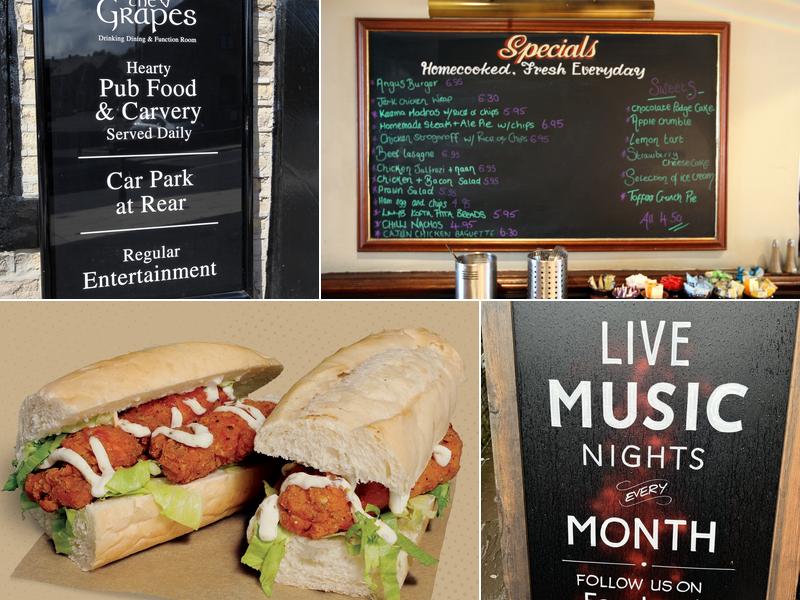 the
Grapes
Drinking Dining & Function Room
Hearty
Pub Food
& Carvery
Served Daily
Car Park
at Rear
Regular
Entertainment
Specials
Homecooked, Fresh Everyday
Angus Burger 6.95
Jerk Chicken Wrap 6.30
Keema Madras w/Rice or chips 5.95
Homemade Steak + Ale Pie w/chips 6.95
Chicken Stroganoff w/ Rice or Chips 6.95
Beef lasagne 6.95
Chicken Jalfrezi + naan 6.95
Chicken + Bacon Salad 5.95
Prawn Salad
Ham egg and chips 4.95
Lamb Kofta Pitta Breads 5.95
CHILLI NACHOS 4.95
CAJUN CHICKEN BAGUETTE 6.30
Sweets
Chocolate Fudge Cake
Apple crumble
Lemon tart
Strawberry
Cheese Cake
Selection of ice cream
Toffee Crunch Pie
All 4.50
LIVE
MUSIC
NIGHTS
EVERY
MONTH
FOLLOW US ON